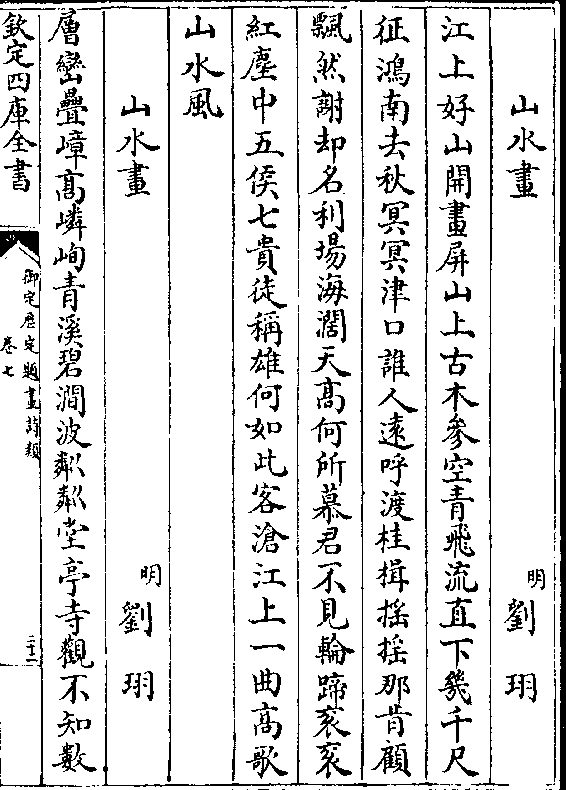 山水畫　明　劉　珝
江上好山開畫屏山上古木參空青飛流直下幾千尺
征鴻南去秋冥冥津口誰人遠呼渡桂楫搖搖那肯顧
飄然謝却名利場海闊天髙何所慕君不見輪蹄衮衮
紅塵中五侯七貴徒稱雄何如此客滄江上一曲髙歌
山水風
山水畫　明　劉　珝
層巒疊嶂髙嶙峋青溪碧澗波粼粼堂亭寺觀不知數
欽定四庫全書
御定歴定題畫詩類
卷七
二十二